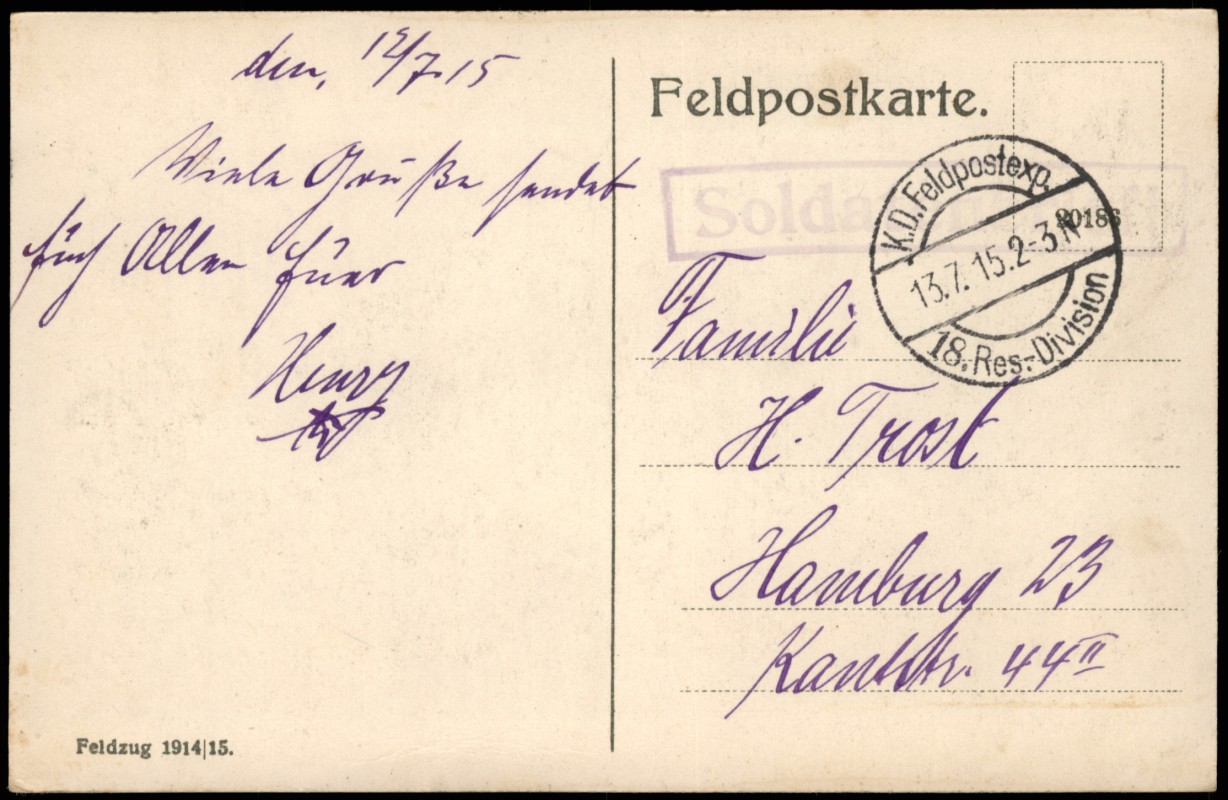 den, 12/7.15
Viele Grüße sendet
Euch Allen Euer
Henry
Feldzug 1914|15.
Feldpostkarte.
K.D. Feldpostexp.
13.7.15.2-3N
18. Res.-Division
Familie
H. Trost
Hamburg 23
Kantstr. 44II